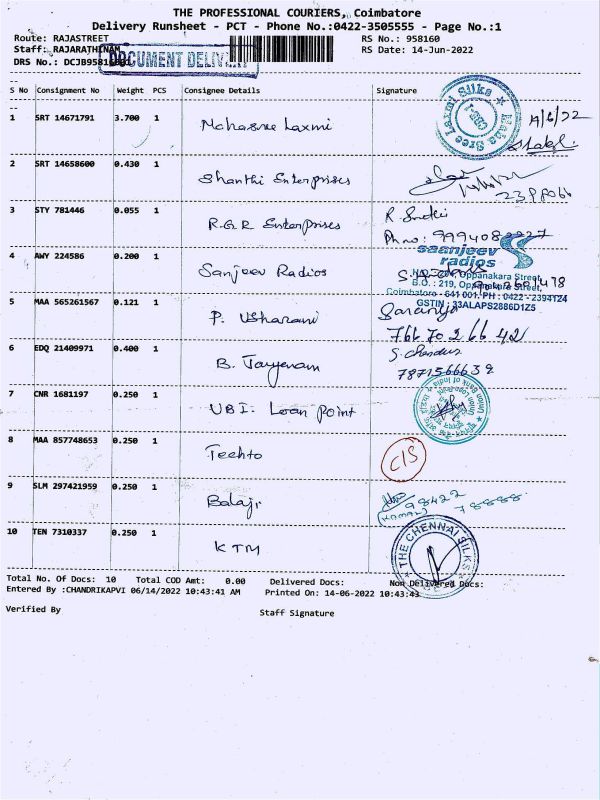 THE PROFESSIONAL COURIERS, Coimbatore
Delivery Runsheet - PCT - Phone No.:0422-3505555 - Page No.:1
Route: RAJASTREET
RS No.: 958160
Staff: RAJARATHINAM
DOCUMENT DELIVERY
RS Date: 14-Jun-2022
DRS No.: DCJB95816
S No Consignment No Weight PCS Consignee Details Signature
1 SRT 14671791 3.700 1 Mahasree Laxmi
Maha Sree Laxmi Silks
2 SRT 14658600 0.430 1 Shanthi Enterprises
3 STY 781446 0.055 1 R.G.R Enterprises
Ph no:
4 AWY 224586 0.200 1 Sanjeev Radios
saanjeev
radios
Oppanakara Street,
B.O. : 219, Oppanakara Street,
Coimbatore - 641 001. PH : 0422 - 2394124
GSTIN : 33ALAPS2886D1Z5
5 MAA 565261567 0.121 1 P. Usharani
Saranya
6 EDQ 21409971 0.400 1 B. Jayeram
7871566639
7 CNR 1681197 0.250 1 UBI. Loan Point
Union Bank of India
8 MAA 857748653 0.250 1 Teehto
C/S
9 SLM 297421959 0.250 1 Balaji
98422
78888
10 TEN 7310337 0.250 1 KTM
THE CHENNAI SILKS
Total No. Of Docs: 10 Total COD Amt: 0.00 Delivered Docs: Non Delivered Docs:
Entered By :CHANDRIKAPVI 06/14/2022 10:43:41 AM Printed On: 14-06-2022 10:43:43
Verified By
Staff Signature